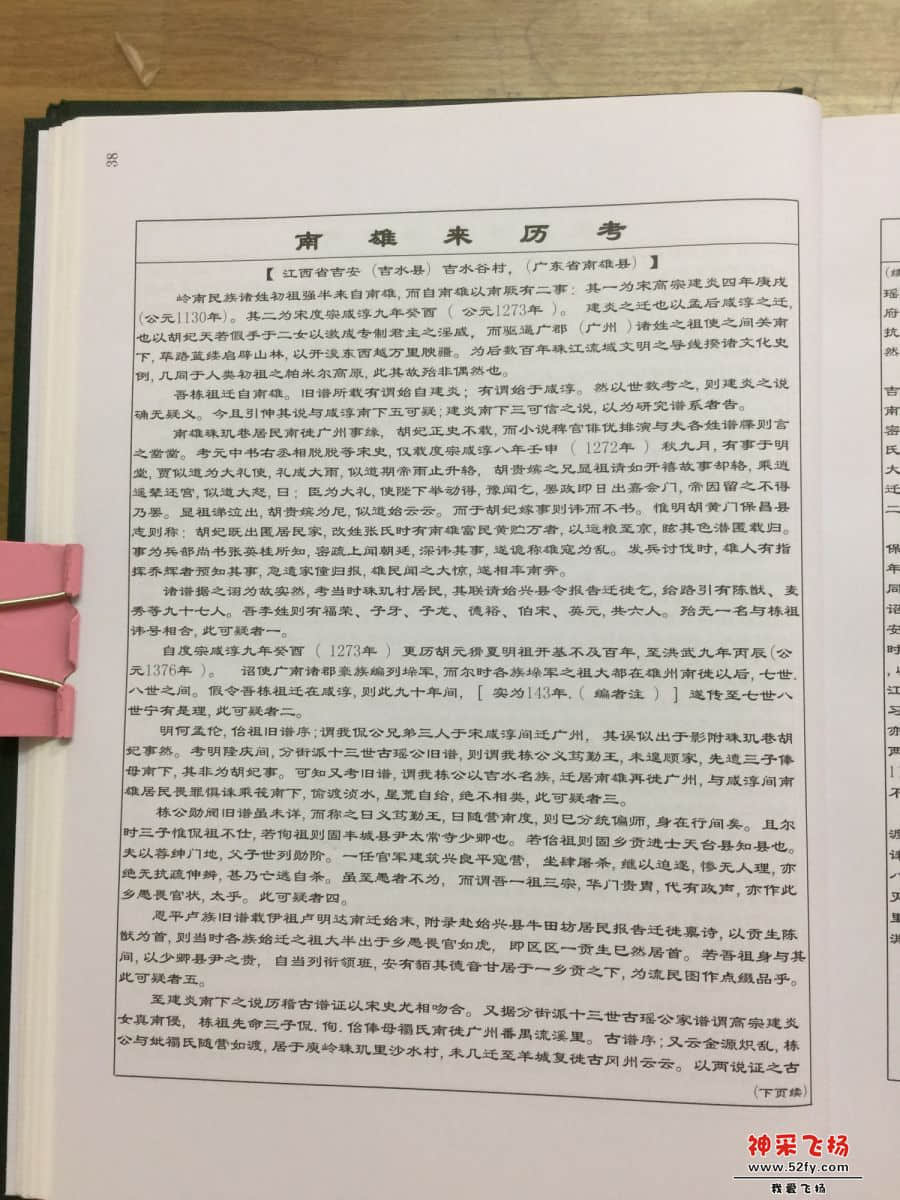 38
南雄来历考
【 江西省吉安（吉水县）吉水谷村，（广东省南雄县）】
岭南民族诸姓初祖强半来自南雄，而自南雄以南厥有二事：其一为宋高宗建炎四年庚戌
(公元1130年)。其二为宋度宗咸淳九年癸酉（ 公元1273年 ）。 建炎之迁也以孟后咸淳之迁，
也以胡妃天若假手于二女以激成专制君主之淫威，而驱逼广郡（广州 ）诸姓之祖使之间关南
下，荜路蓝缕启辟山林，以开浸东西越万里腴疆。为后数百年珠江流域文明之导线揆诸文化史
例，几同于人类初祖之帕米尔高原，此其故殆非偶然也。
吾栋祖迁自南雄。旧谱所载有谓始自建炎；有谓始于咸淳。然以世数考之，则建炎之说
确无疑义。今且引伸其说与咸淳南下五可疑；建炎南下三可信之说，以为研究谱系者告。
南雄珠玑巷居民南徙广州事缘，胡妃正史不载，而小说稗官俳优排演与夫各姓谱牒则言
之凿凿。考元中书右丞相脱脱等宋史，仅载度宗咸淳八年壬申（ 1272年 ）秋九月，有事于明
堂，贾似道为大礼使，礼成大雨，似道期帝雨止升辂，胡贵缤之兄显祖请如开禧故事却辂，乘逍
遥辇还宫，似道大怒，曰；臣为大礼，使陛下举动得，豫闻乞，罢政即日出嘉会门，帝因留之不得
乃罢。显祖涕泣出，胡贵缤为尼，似道始云云。而于胡妃嫁事则讳而不书。惟明胡黄门保昌县
志则称；胡妃既出匿居民家，改姓张氏时有南雄富民黄贮万者，以运粮至京，眩其色潜匿载归。
事为兵部尚书张英桂所知，密疏上闻朝延，深讳其事，遂诡称雄寇为乱。发兵讨伐时，雄人有指
挥乔辉者预知其事，急遣家僮归报，雄民闻之大惊，遂相率南奔。
诸谱据之诩为故实然，考当时珠玑村居民，其联请始兴县令报告迁徙乞，给路引有陈猷、麦
秀等九十七人。吾李姓则有福荣、子牙、子龙、德裕、伯宋、英元，共六人。殆无一名与栋祖
讳号相合，此可疑者一。
自度宗咸淳九年癸酉（ 1273年 ）更历胡元猾夏明祖开基不及百年，至洪武九年丙辰(公
元1376年 )。 诏使广南诸郡豪族编列垛军，而尔时各族垛军之祖大都在雄州南徙以后，七世.
八世之间。假令吾栋祖迁在咸淳，则此九十年间，［ 实为143年.（ 编者注 ）］遂传至七世八
世宁有是理，此可疑者二。
明何孟伦，佁祖旧谱序；谓我侃公兄弟三人于宋咸淳间迁广州，其误似出于影附珠玑巷胡
妃事然。考明隆庆间，分街派十三世古瑶公旧谱，则谓我栋公义笃勤王，未遑顺家，先遣三子俸
母南下，其非为胡妃事。可知又考旧谱，谓我栋公以吉水名族，迁居南雄再徙广州，与咸淳间南
雄居民畏罪惧诛乘筏南下，偷渡浈水，星荒自给，绝不相类，此可疑者三。
栋公勋阀旧谱虽未详，而称之曰义笃勤王，曰随营南度，则已分统偏师，身在行间矣。且尔
时三子惟侃祖不仕，若佝祖则固丰城县尹太常寺少卿也。若佁祖则固乡贡进士天台县知县也。
夫以荐绅门地，父子世列勋阶。一任官军建筑兴良平寇营，坐肆屠杀，继以迫逐，惨无人理，亦
绝无抗疏伸辨，甚乃亡逃自杀。虽至愚者不为，而谓吾一祖三宗，华门贵胄，代有政声，亦作此
乡愚畏官状，太乎。此可疑者四。
恩平卢族旧谱载伊祖卢明达南迁始末，附录赴始兴县牛田坊居民报告迁徙禀诗，以贡生陈
猷为首，则当时各族始迁之祖大半出于乡愚畏官如虎，即区区一贡生巳然居首。若吾祖身与其
间，以少卿县尹之贵，自当列衔领班，安有貊其德音甘居于一乡贡之下，为流民图作点缀品乎。
此可疑者五。
至建炎南下之说历稽古谱证以宋史尤相吻合。又据分街派十三世古瑶公家谱谓高宗建炎
女真南侵，栋祖先命三子侃.佝.佁俸母禤氏南徙广州番禺流溪里。古谱序；又云金源炽乱，栋
公与妣禤氏随营如渡，居于庾岭珠玑里沙水村，未几迁至羊城复徙古冈州云云。以两说证之古
(下页续)
神采飞扬
www.52fy.com
我爱飞扬